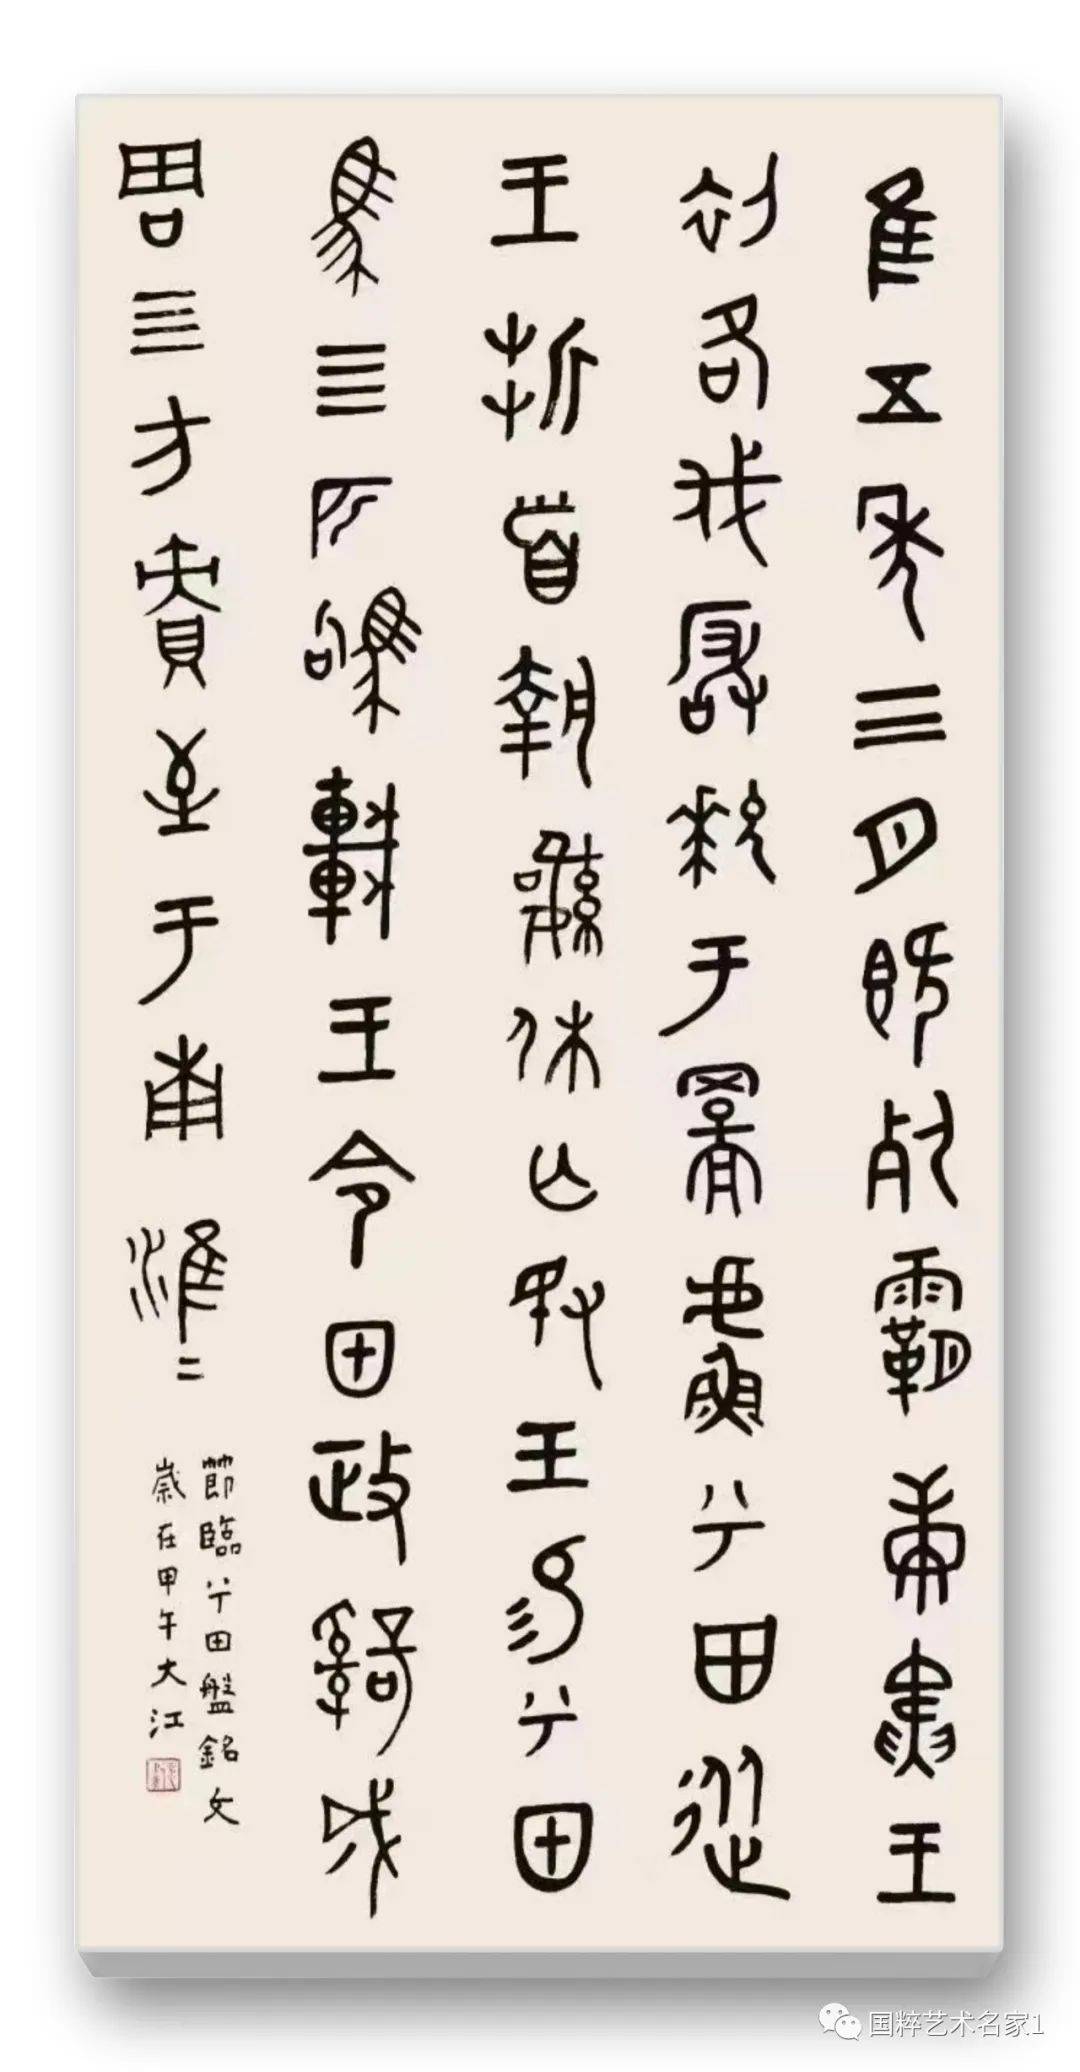 隹五年三月既死霸庚寅王
初各伐玁狁于䣙䖒兮甲從
王折首執訊休亡敃王易兮甲
馬亖匹駒車王令甲政𤔲成
周亖方責至于南淮=
節臨兮田盤銘文
歲在甲午大江
国粹艺术名家1